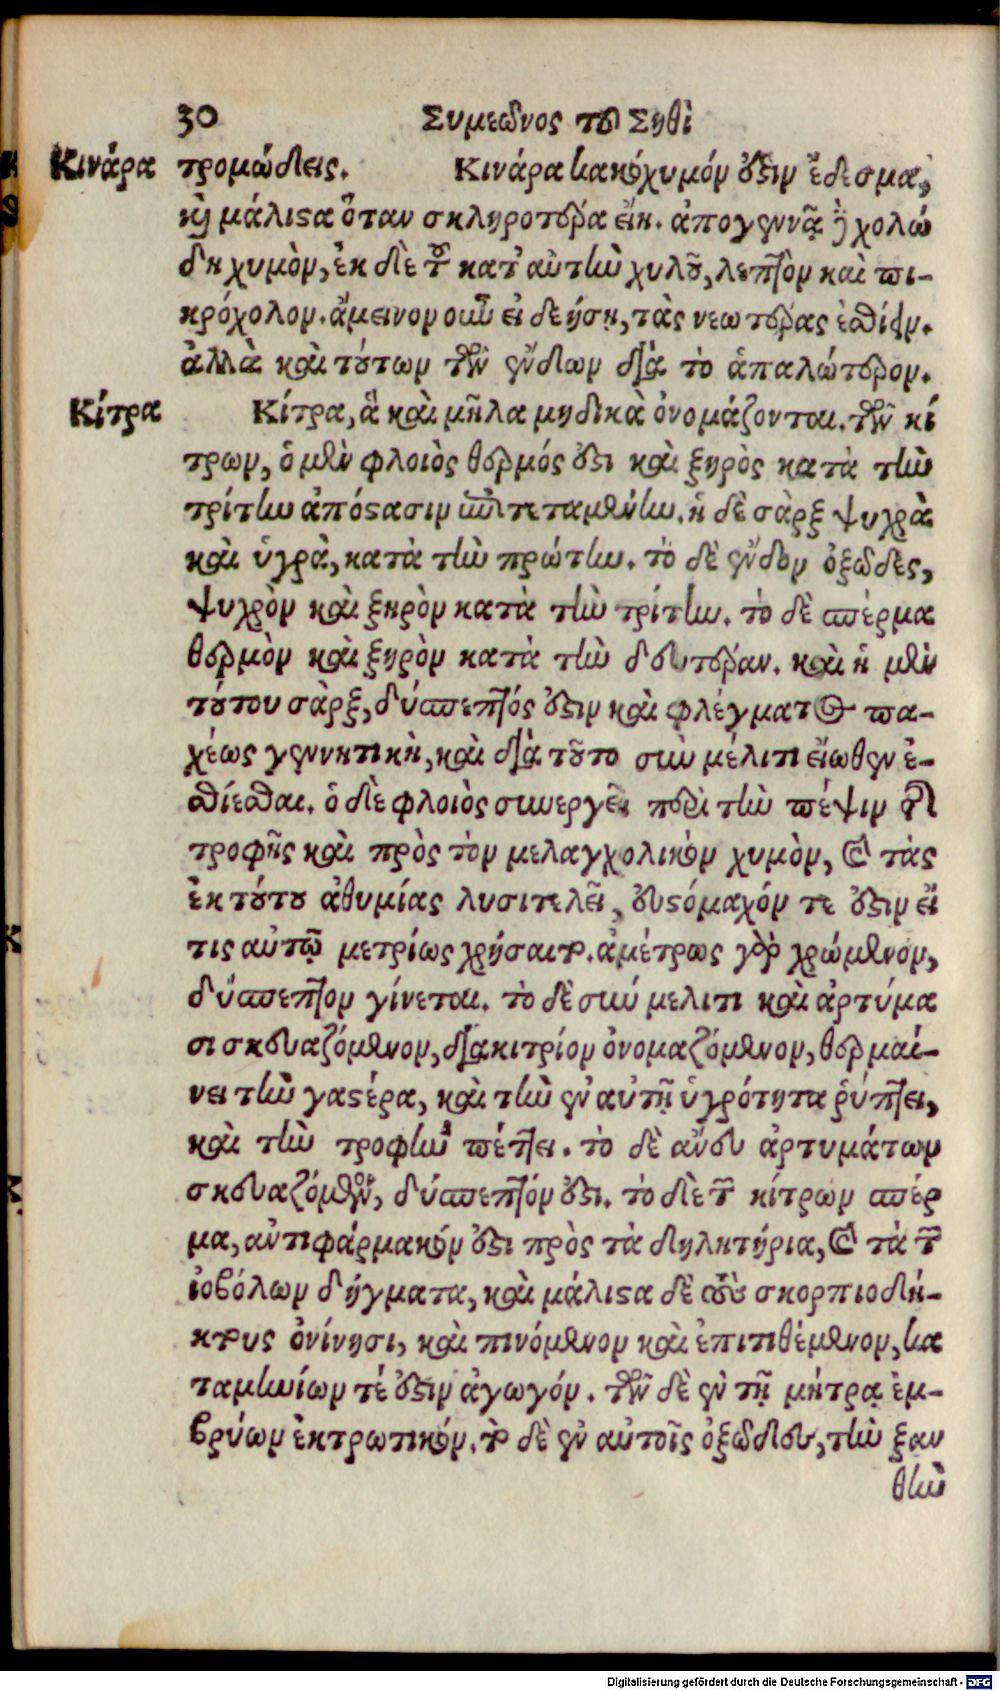 30 Συμεῶνος τοῦ Σηθὶ
Κινάρα τρομώδεις. Κινάρα κακόχυμόν ἐστιν ἔδεσμα,
καὶ μάλιστα ὅταν σκληροτέρα εἴη. ἀπογεννᾷ γὰρ χολώ
δη χυμὸν, ἐκ δὲ τοῦ κατ' αὐτὴν χυλοῦ, λεπτὸν καὶ πι-
κρόχολον. ἄμεινον οὖν εἰ δεήσῃ, τὰς νεωτέρας ἐσθίειν.
ἀλλὰ καὶ τούτων τῶν ἔνδων διὰ τὸ ἁπαλώτερον.
Κίτρα Κίτρα, ἃ καὶ μῆλα μηδικὰ ὀνομάζονται. τῶν κί
τρων, ὁ μὲν φλοιὸς θερμός ἐστι καὶ ξηρὸς κατὰ τὴν
τρίτην ἀπόστασιν ἐπιτεταμένην. ἡ δὲ σὰρξ ψυχρὰ
καὶ ὑγρὰ, κατὰ τὴν πρώτην. τὸ δὲ ἔνδον ὀξῶδες,
ψυχρὸν καὶ ξηρὸν κατὰ τὴν τρίτην. τὸ δὲ σπέρμα
θερμὸν καὶ ξηρὸν κατὰ τὴν δευτέραν. καὶ ἡ μὲν
τούτου σὰρξ, δύσπεπτός ἐστιν καὶ φλέγματος πα-
χέως γεννητικὴ, καὶ διὰ τοῦτο σὺν μέλιτι εἴωθεν ἐ-
σθίεσθαι. ὁ δὲ φλοιὸς συνεργεῖ περὶ τὴν πέψιν τῆς
τροφῆς καὶ πρὸς τὸν μελαγχολικὸν χυμὸν, καὶ τὰς
ἐκ τούτου ἀθυμίας λυσιτελεῖ, εὐστόμαχόν τε ἐστιν εἴ
τις αὐτῷ μετρίως χρήσαιτο. ἀμέτρως γὰρ χρώμενον,
δύσπεπτον γίνεται. τὸ δὲ σὺν μελιτι καὶ ἀρτύμα
σι σκευαζόμενον, διακιτρίον ὀνομαζόμενον, θερμαί-
νει τὴν γαστέρα, καὶ τὴν ἐν αὐτῇ ὑγρότητα ῥύπτει,
καὶ τὴν τροφὴν πέττει. τὸ δὲ ἄνευ ἀρτυμάτων
σκευαζόμενον, δύσπεπτόν ἐστι. τὸ δὲ τῶν κίτρων σπέρ
μα, ἀντιφάρμακόν ἐστι πρὸς τὰ δηλητήρια, καὶ τὰ τῶν
ἰοβόλων δήγματα, καὶ μάλιστα δὲ τοὺς σκορπιοδή-
κτους ὀνίνησι, καὶ πινόμενον καὶ ἐπιτιθέμενον, κα
ταμηνίων τέ ἐστιν ἀγωγόν. τῶν δὲ ἐν τῇ μήτρᾳ ἐμ-
βρύων ἐκτρωτικόν. τὸ δὲ ἐν αὐτοῖς ὀξῶδες, τὴν ξαν
θὴν
Digitalisierung gefördert durch die Deutsche Forschungsgemeinschaft - DFG